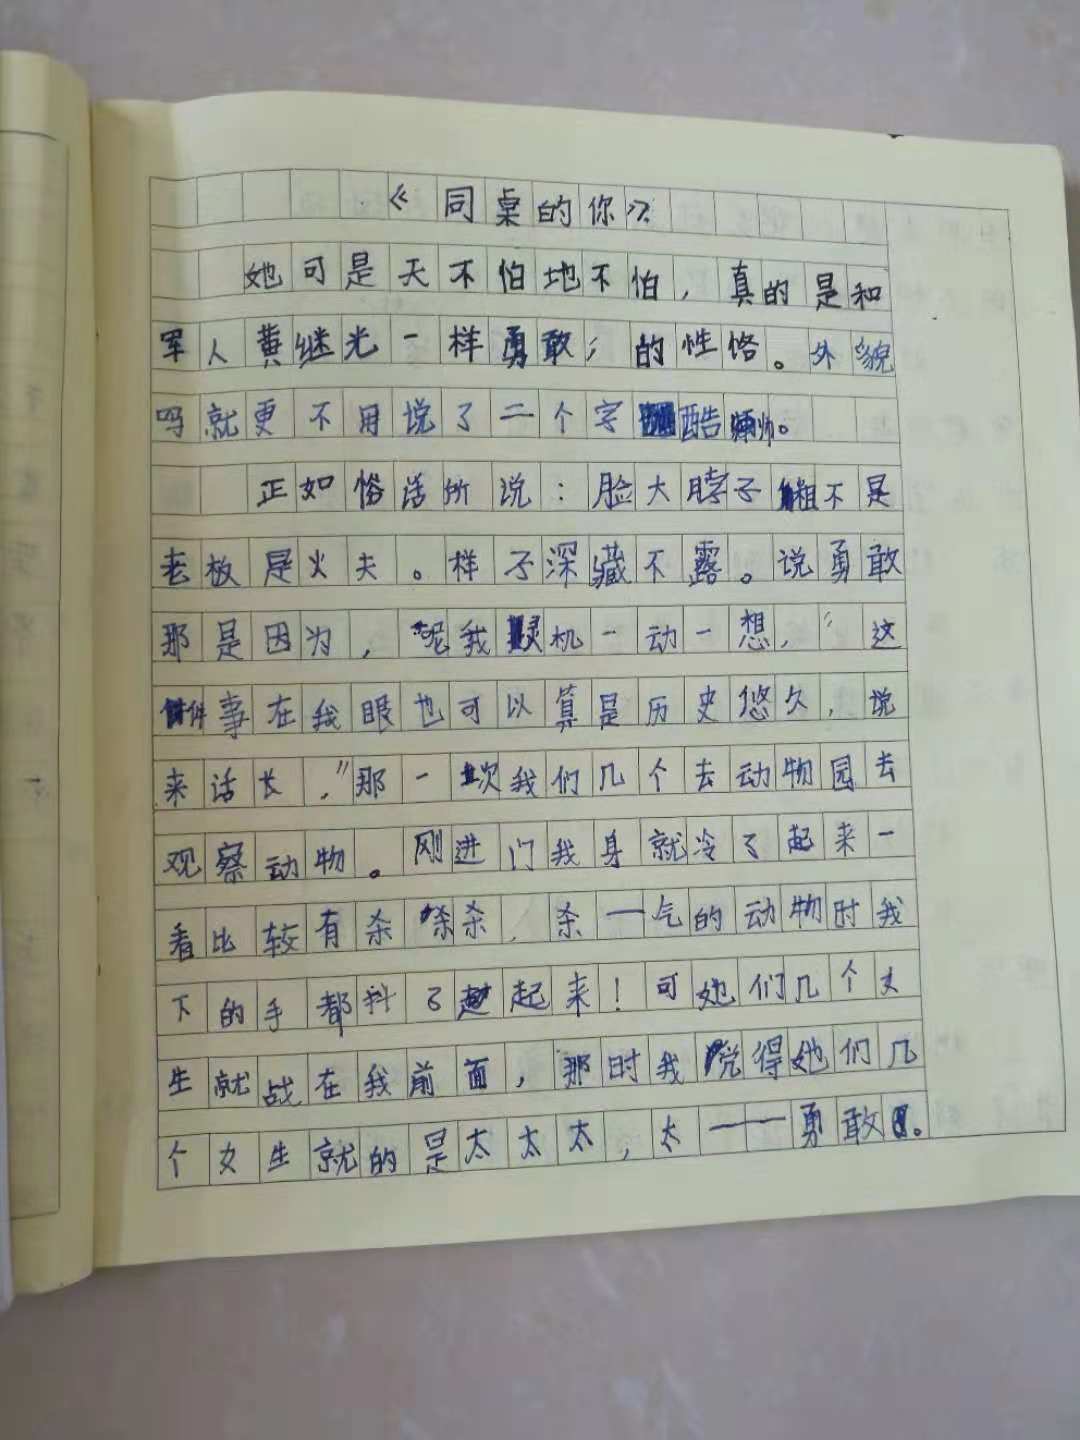 《同桌的你》
她可是天不怕地不怕，真的是和
军人黄继光一样勇敢，的性恪。外貌
吗就更不用说了二个字酷帅。
正如俗话所说：脸大脖子粗不是
老板是火夫。样子深藏不露。说勇敢
那是因为，呢我灵机一动一想，“这
件事在我眼也可以算是历史悠久，说
来话长，”那一次我们几个去动物园去
观察动物。刚进门我身就冷了起来一
看比较有杀杀杀，杀一气的动物时我
下的手都抖了起来！可她们几个女
生就战在我前面，那时我觉得她们几
个女生就的是太太太，太——勇敢。